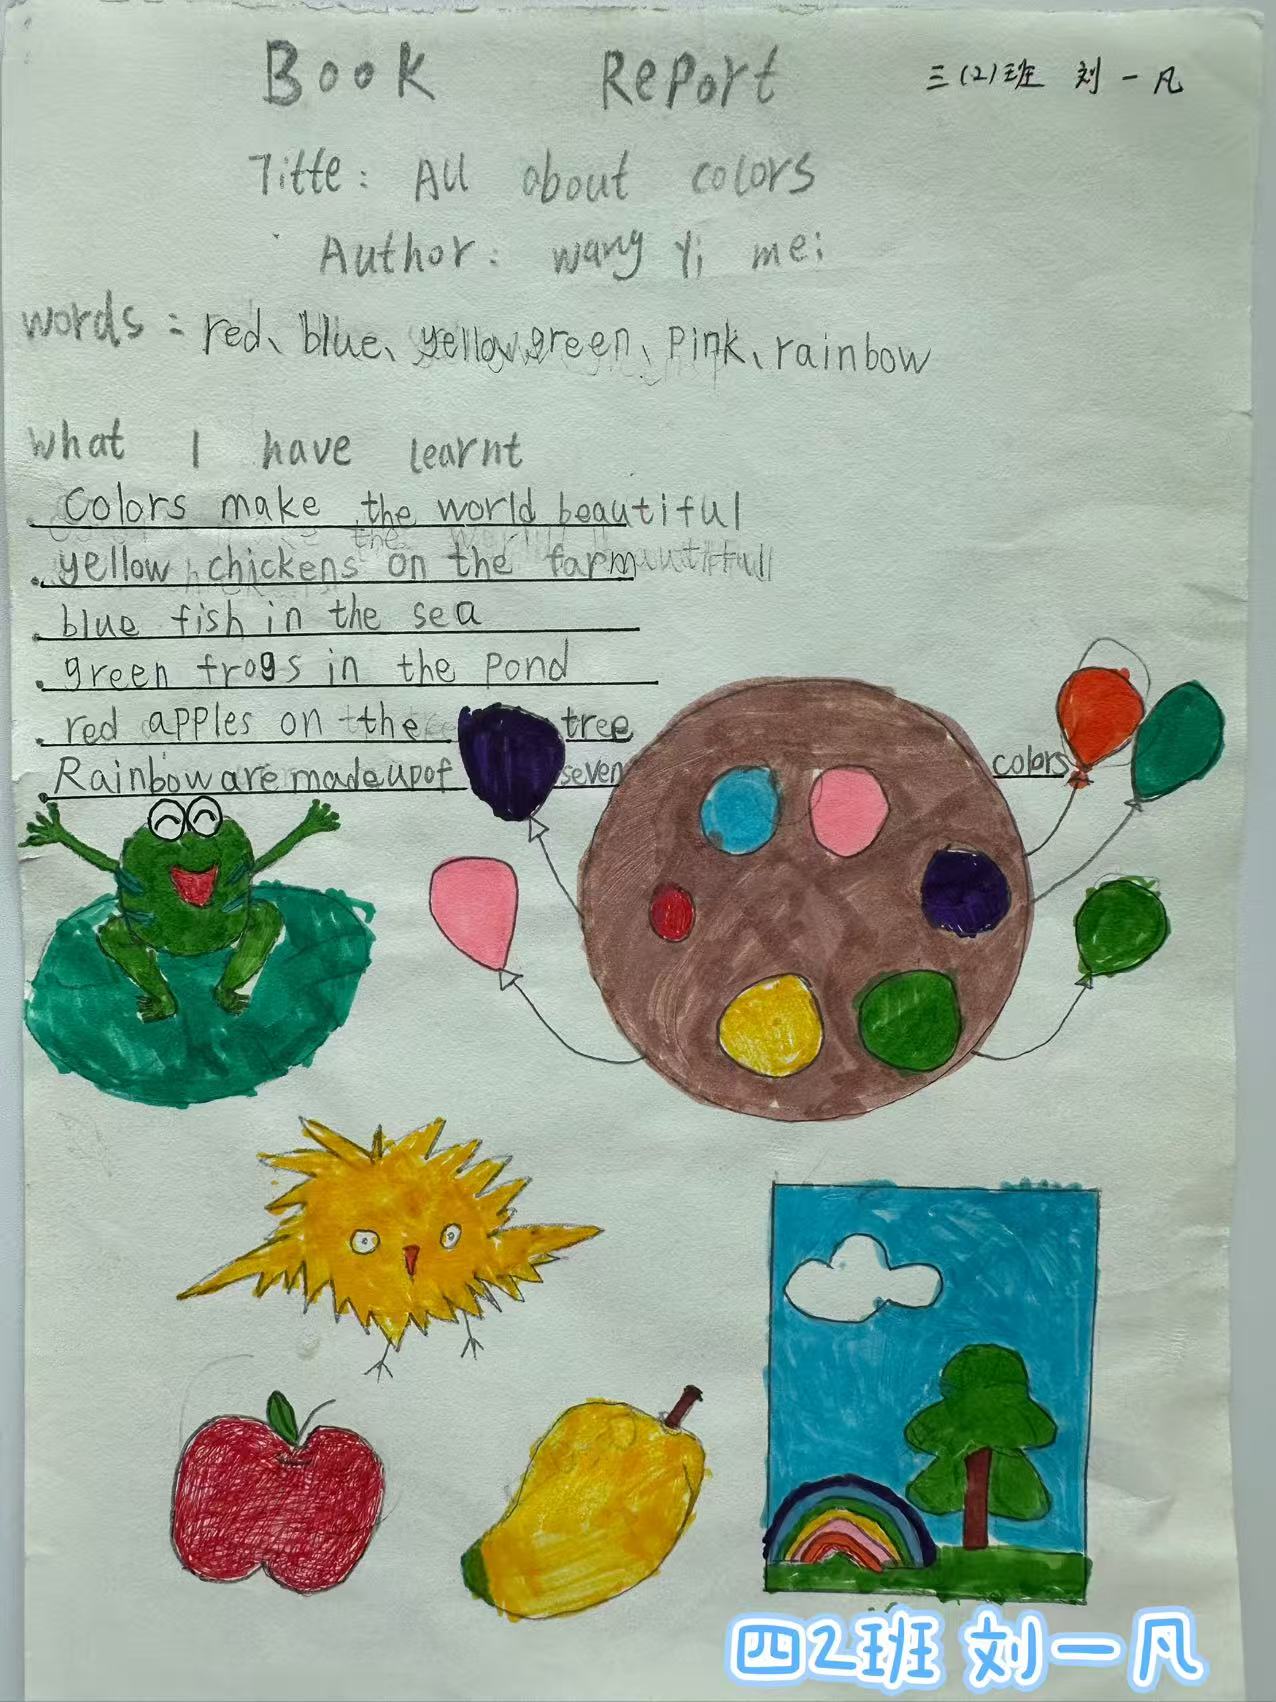 Book Report 三(2)班 刘一凡
Titte: All about colors
Author: wang Yi mei
words: red、blue、yellow、green、Pink、rainbow
what I have learnt
colors make the world beautiful
yellow chickens on the farm
blue fish in the sea
green frogs in the pond
red apples on the tree
Rainbow are made up of seven colors
四2班 刘一凡